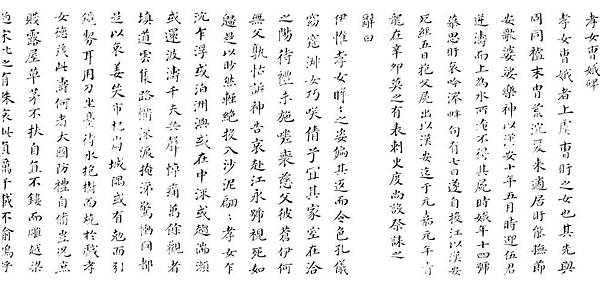 孝女曹娥碑
孝女曹娥者上虞曹盱之女也其先與
周同祖末胄荒沉爰来適居盱能撫節
安歌婆娑樂神以漢安年五月時迎伍君
逆濤而上為水所淹不得其屍時娥年十四號
慕思盱哀吟澤畔旬有七日遂自投江以漢安
死經五日抱父屍出以漢安迄于元嘉元年青
龍在辛卯莫之有表刺史度尚設祭誄之
辭曰
伊惟孝女曄:之姿偏其返而令色孔儀
窈窕淑女巧咲倩兮宜其家室在洽
之陽待禮未施嗟喪慈父彼蒼伊何
無父孰怙訴神告哀赴江永號視死如
歸是以眇然輕絕投入沙泥翩:孝女乍
沉乍浮或泊洲嶼或在中流或趨湍瀨
或還波濤千夫失聲悼痛萬餘觀者
填道雲集路衢泣淚掩涕驚慟國都
是以哀姜哭市杞崩城隅或有剋面引
鏡剺耳用刀坐臺待水抱樹而燒於戲孝
女德茂此儔何者大國防禮自脩豈況庶
賤露屋草茅不扶自直不鏤而雕越梁
過宋比之有殊哀此貞厲千載不渝嗚呼